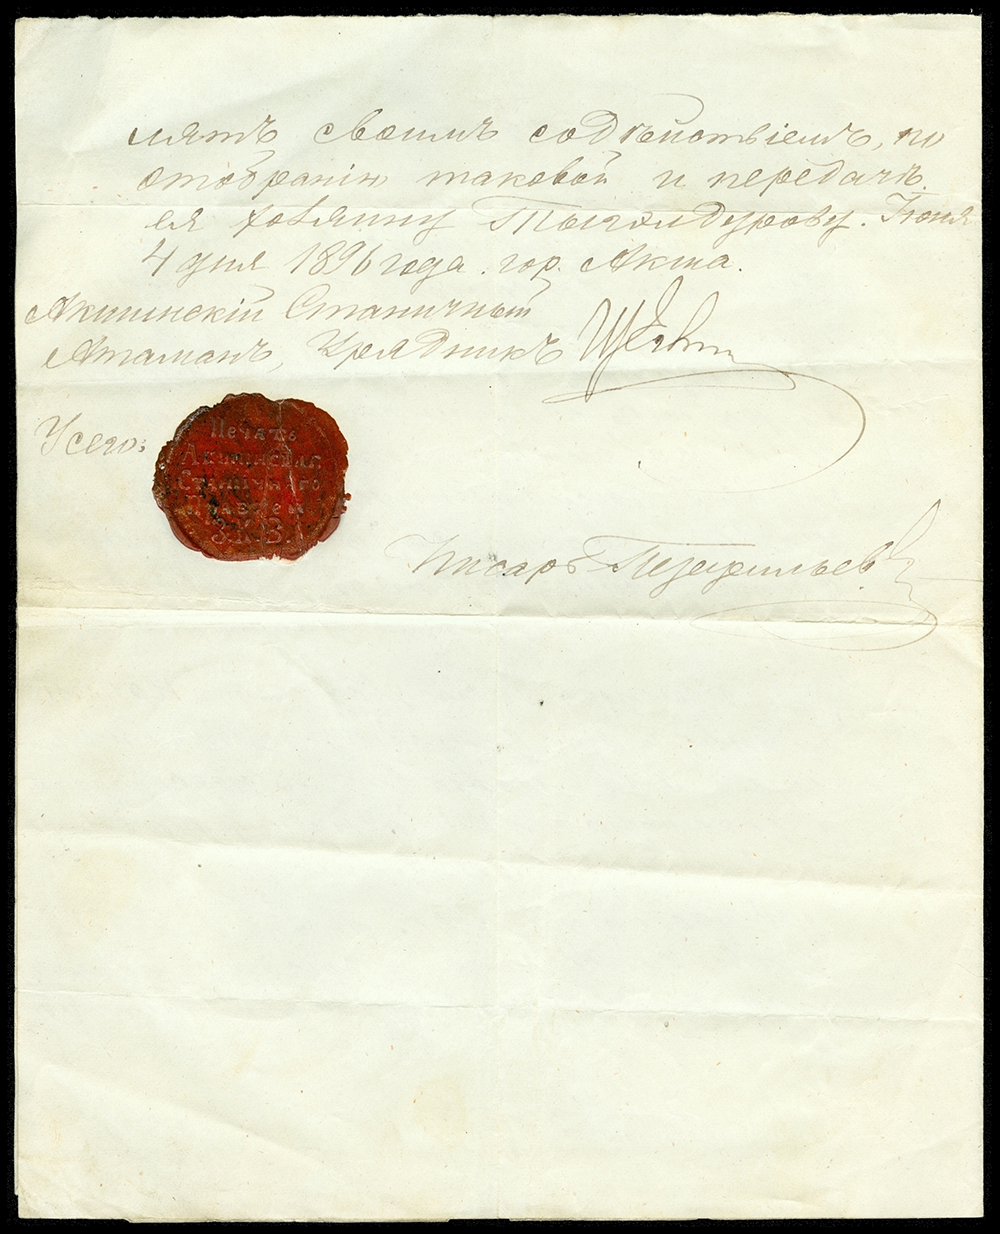 лять своимъ содѣйствіемъ, по
отобранію таковой и передачѣ
ея хозяину Тыгылдурову. Іюня
4 дня 1896 года. гор. Акша.
Акшинскій Станичный
Атаманъ, Урядникъ
У сего:
Печать
Акшинскаг
Станичнаго
Правлен
З.К.В.
Писарь Перфильев